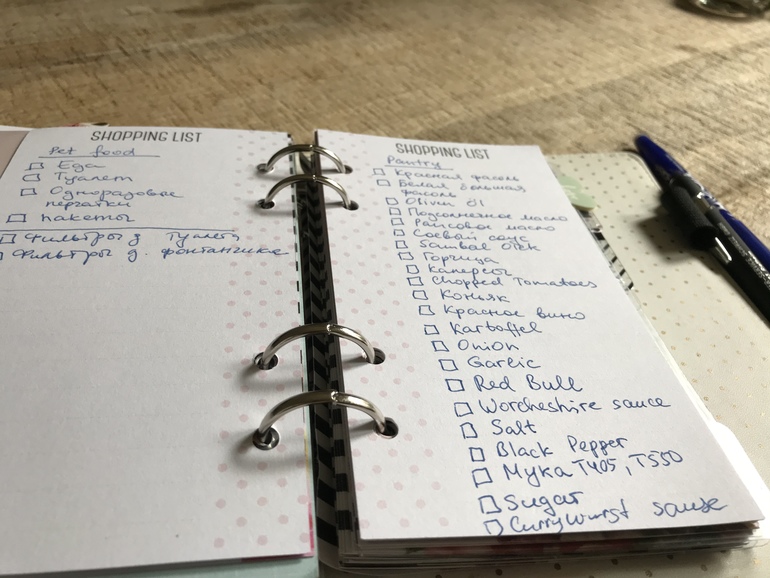 SHOPPING LIST
Pet food
Еда
Туалет
Одноразовые
перчатки
пакеты
Фильтры д туалет
Фильтры д. фонтанчика
SHOPPING LIST
Pantry
Красная фасоль
Белая большая
фасоль
Oliven öl
Подсолнечное масло
Рапсовое масло
Соевый соус
Sambal Olek
Горчица
Каперсы
Chopped Tomatoes
Коньяк
Красное вино
Kartoffel
Onion
Garlic
Red Bull
Worcheshire sauce
Salt
Black Pepper
Мука T405, T550
Sugar
Currywurst sause